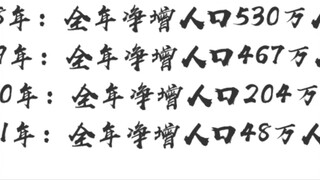 年：全年净增人口530万
9年：全年净增人口467万
0年：全年净增人口204万
1年：全年净增人口48万人